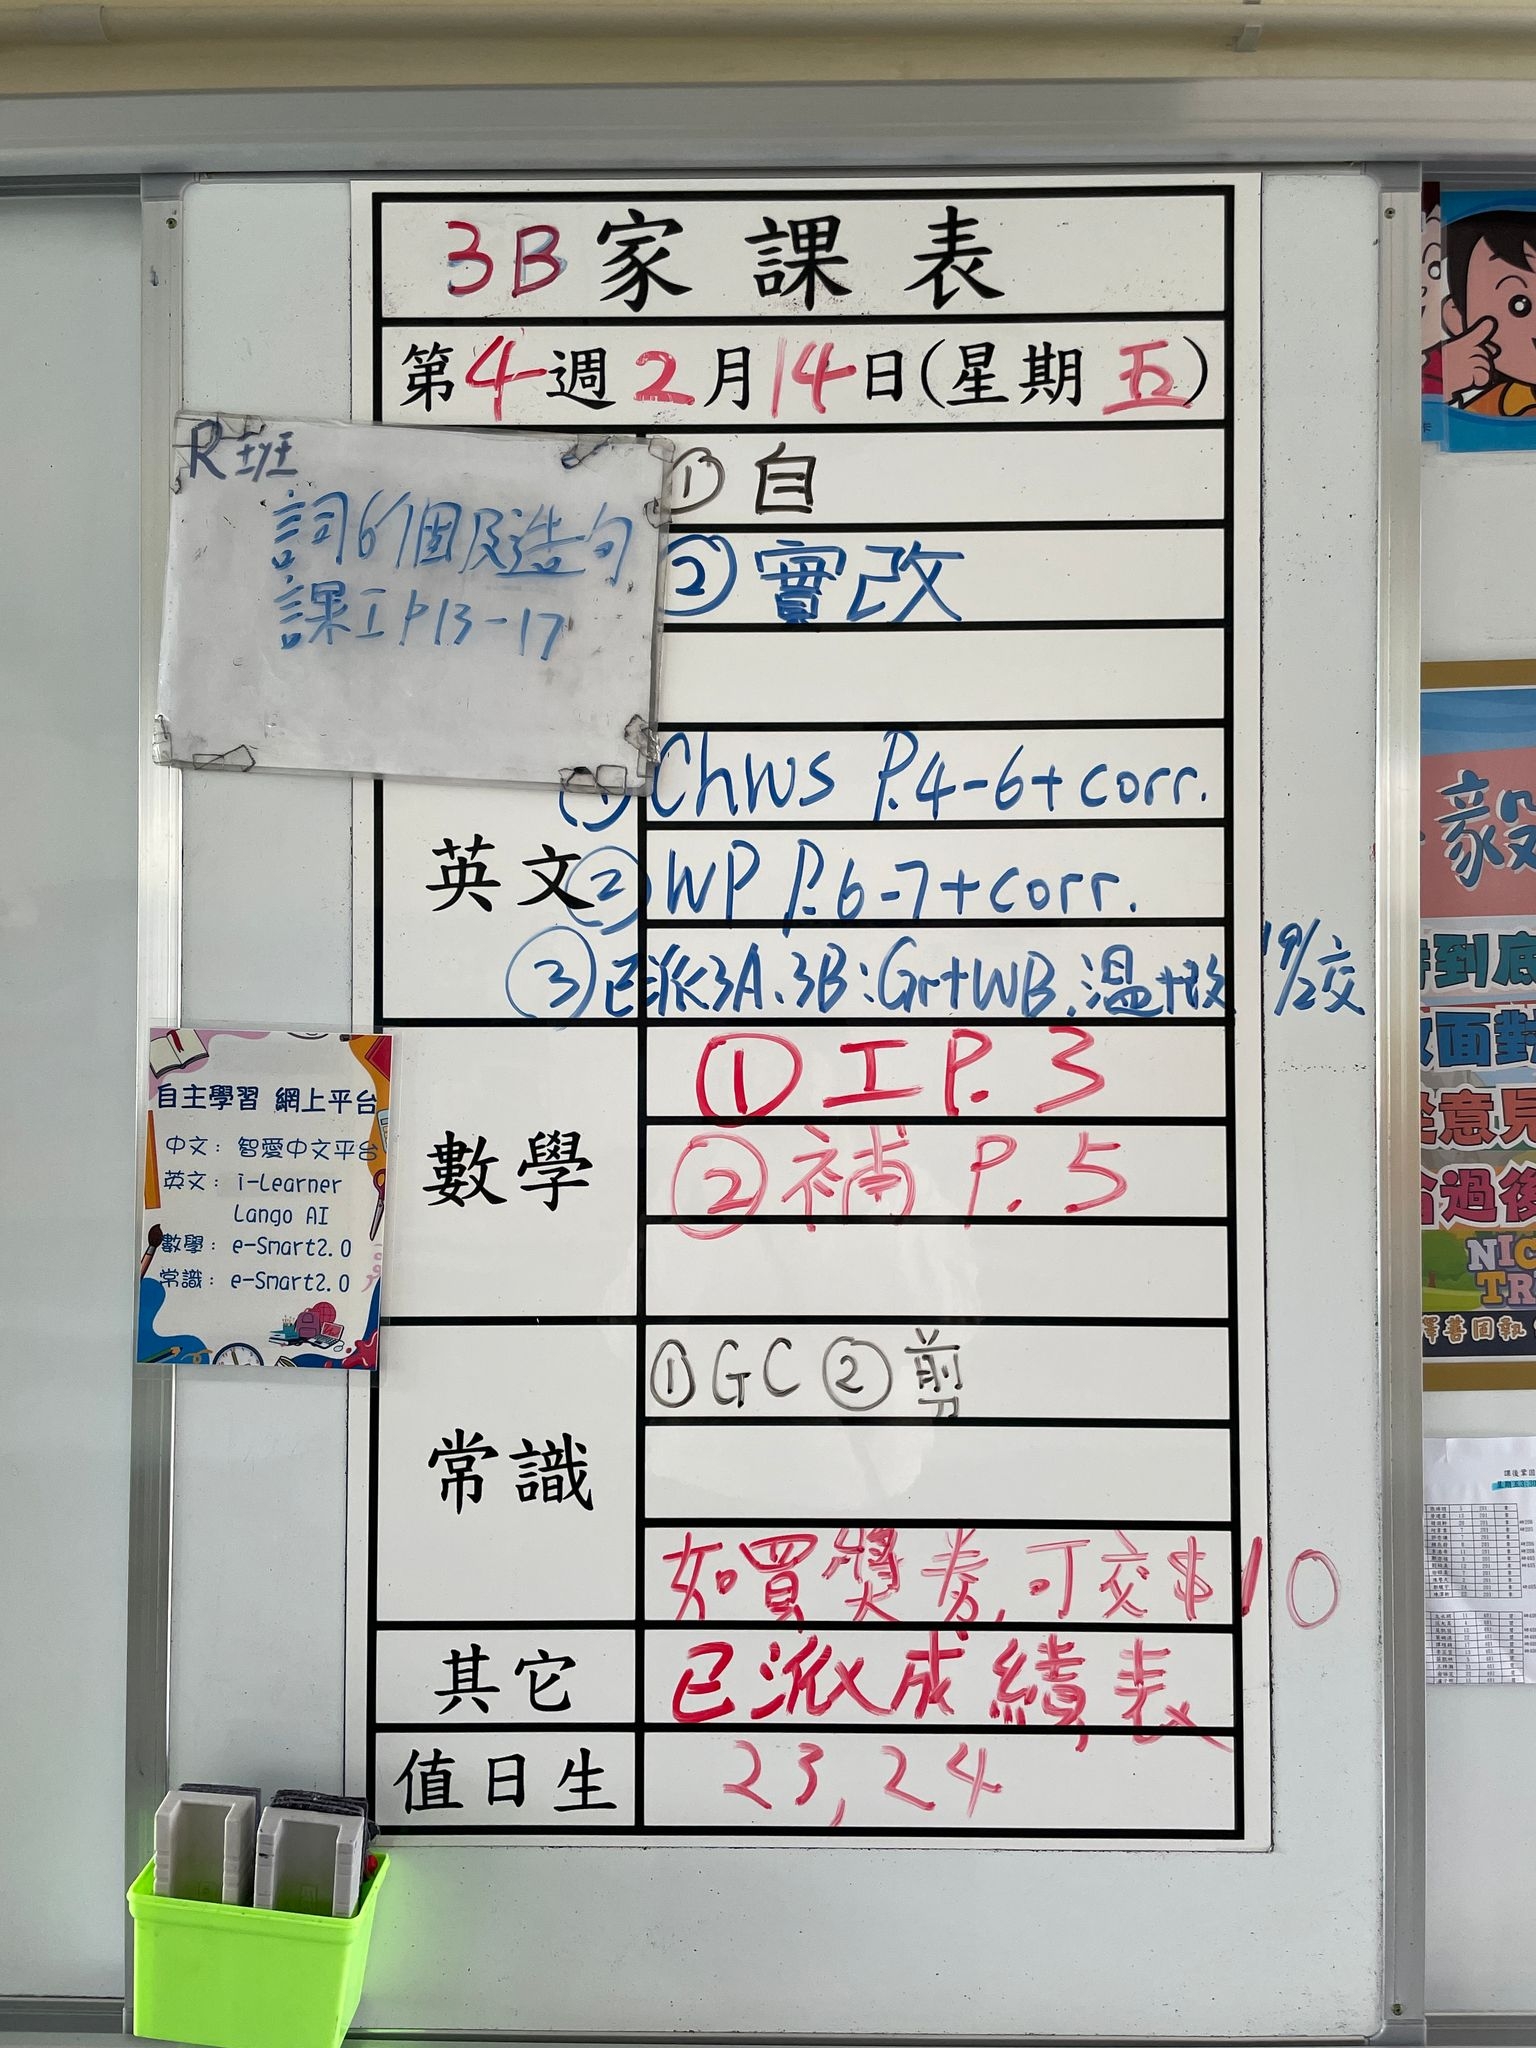 3B家課表
第4週2月14日(星期五)
R班
詞6個及造句
課工P13-17
① 自
② 實改
英文
① Chws P.4-6+corr.
② WP P.6-7+corr.
③ 已派3A.3B:Gr+WB.溫+改 19/2交
數學
① 工 P.3
② 補 P.5
常識
① GC ② 剪
如買獎券,可交$10
其它
已派成績表
值日生
23,24
自主學習 網上平台
中文: 智愛中文平台
英文: i-Learner
Lango AI
數學: e-Smart2.0
常識: e-Smart2.0
到底
面對
意見
過後
NIC
TR
擇善固執